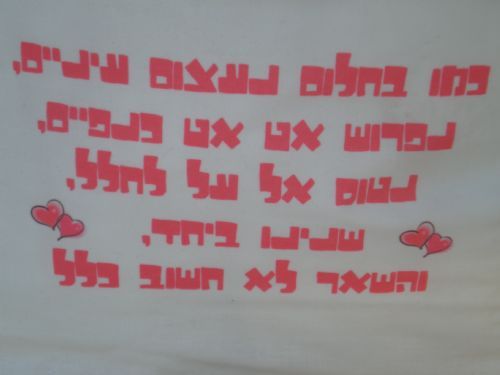 כמו בחלום לעצום עיניים,
לפרוש אט אט כנפיים,
לטוס אל על לחלל,
שנינו ביחד,
והשאר לא חשוב כלל